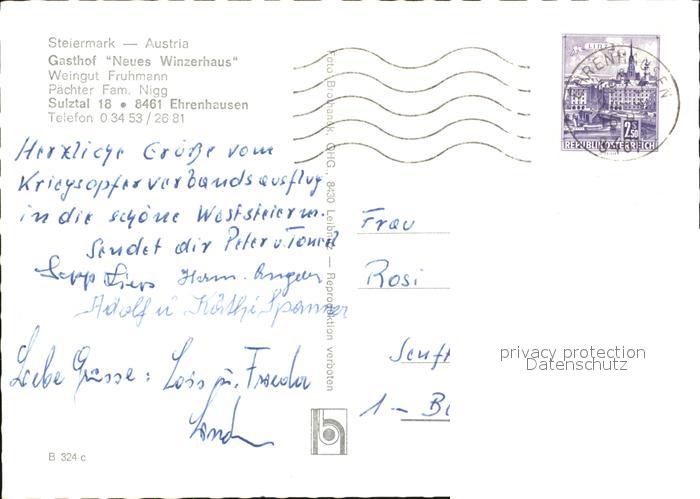 Steiermark — Austria
Gasthof "Neues Winzerhaus"
Weingut Fruhmann
Pächter Fam. Nigg
Sulztal 18 • 8461 Ehrenhausen
Telefon 0 34 53 / 26 81
Herzliche Grüße vom
Kriegsopferverbandsausflug
in die schöne Weststeierm.
Sendet dir Peter u. Toni
Sepp Herm.
Adolf u Käthi Spanner
Liebe Grüsse: Lois u. Frieda
B 324 c
Foto Brothanek, OHG., 8430 Leibnitz — Reproduktion verboten
LINZ
2.50
REPUBLIK ÖSTERREICH
EHRENHAUSEN
Frau
Rosi
Senft
1 - B
privacy protection
Datenschutz